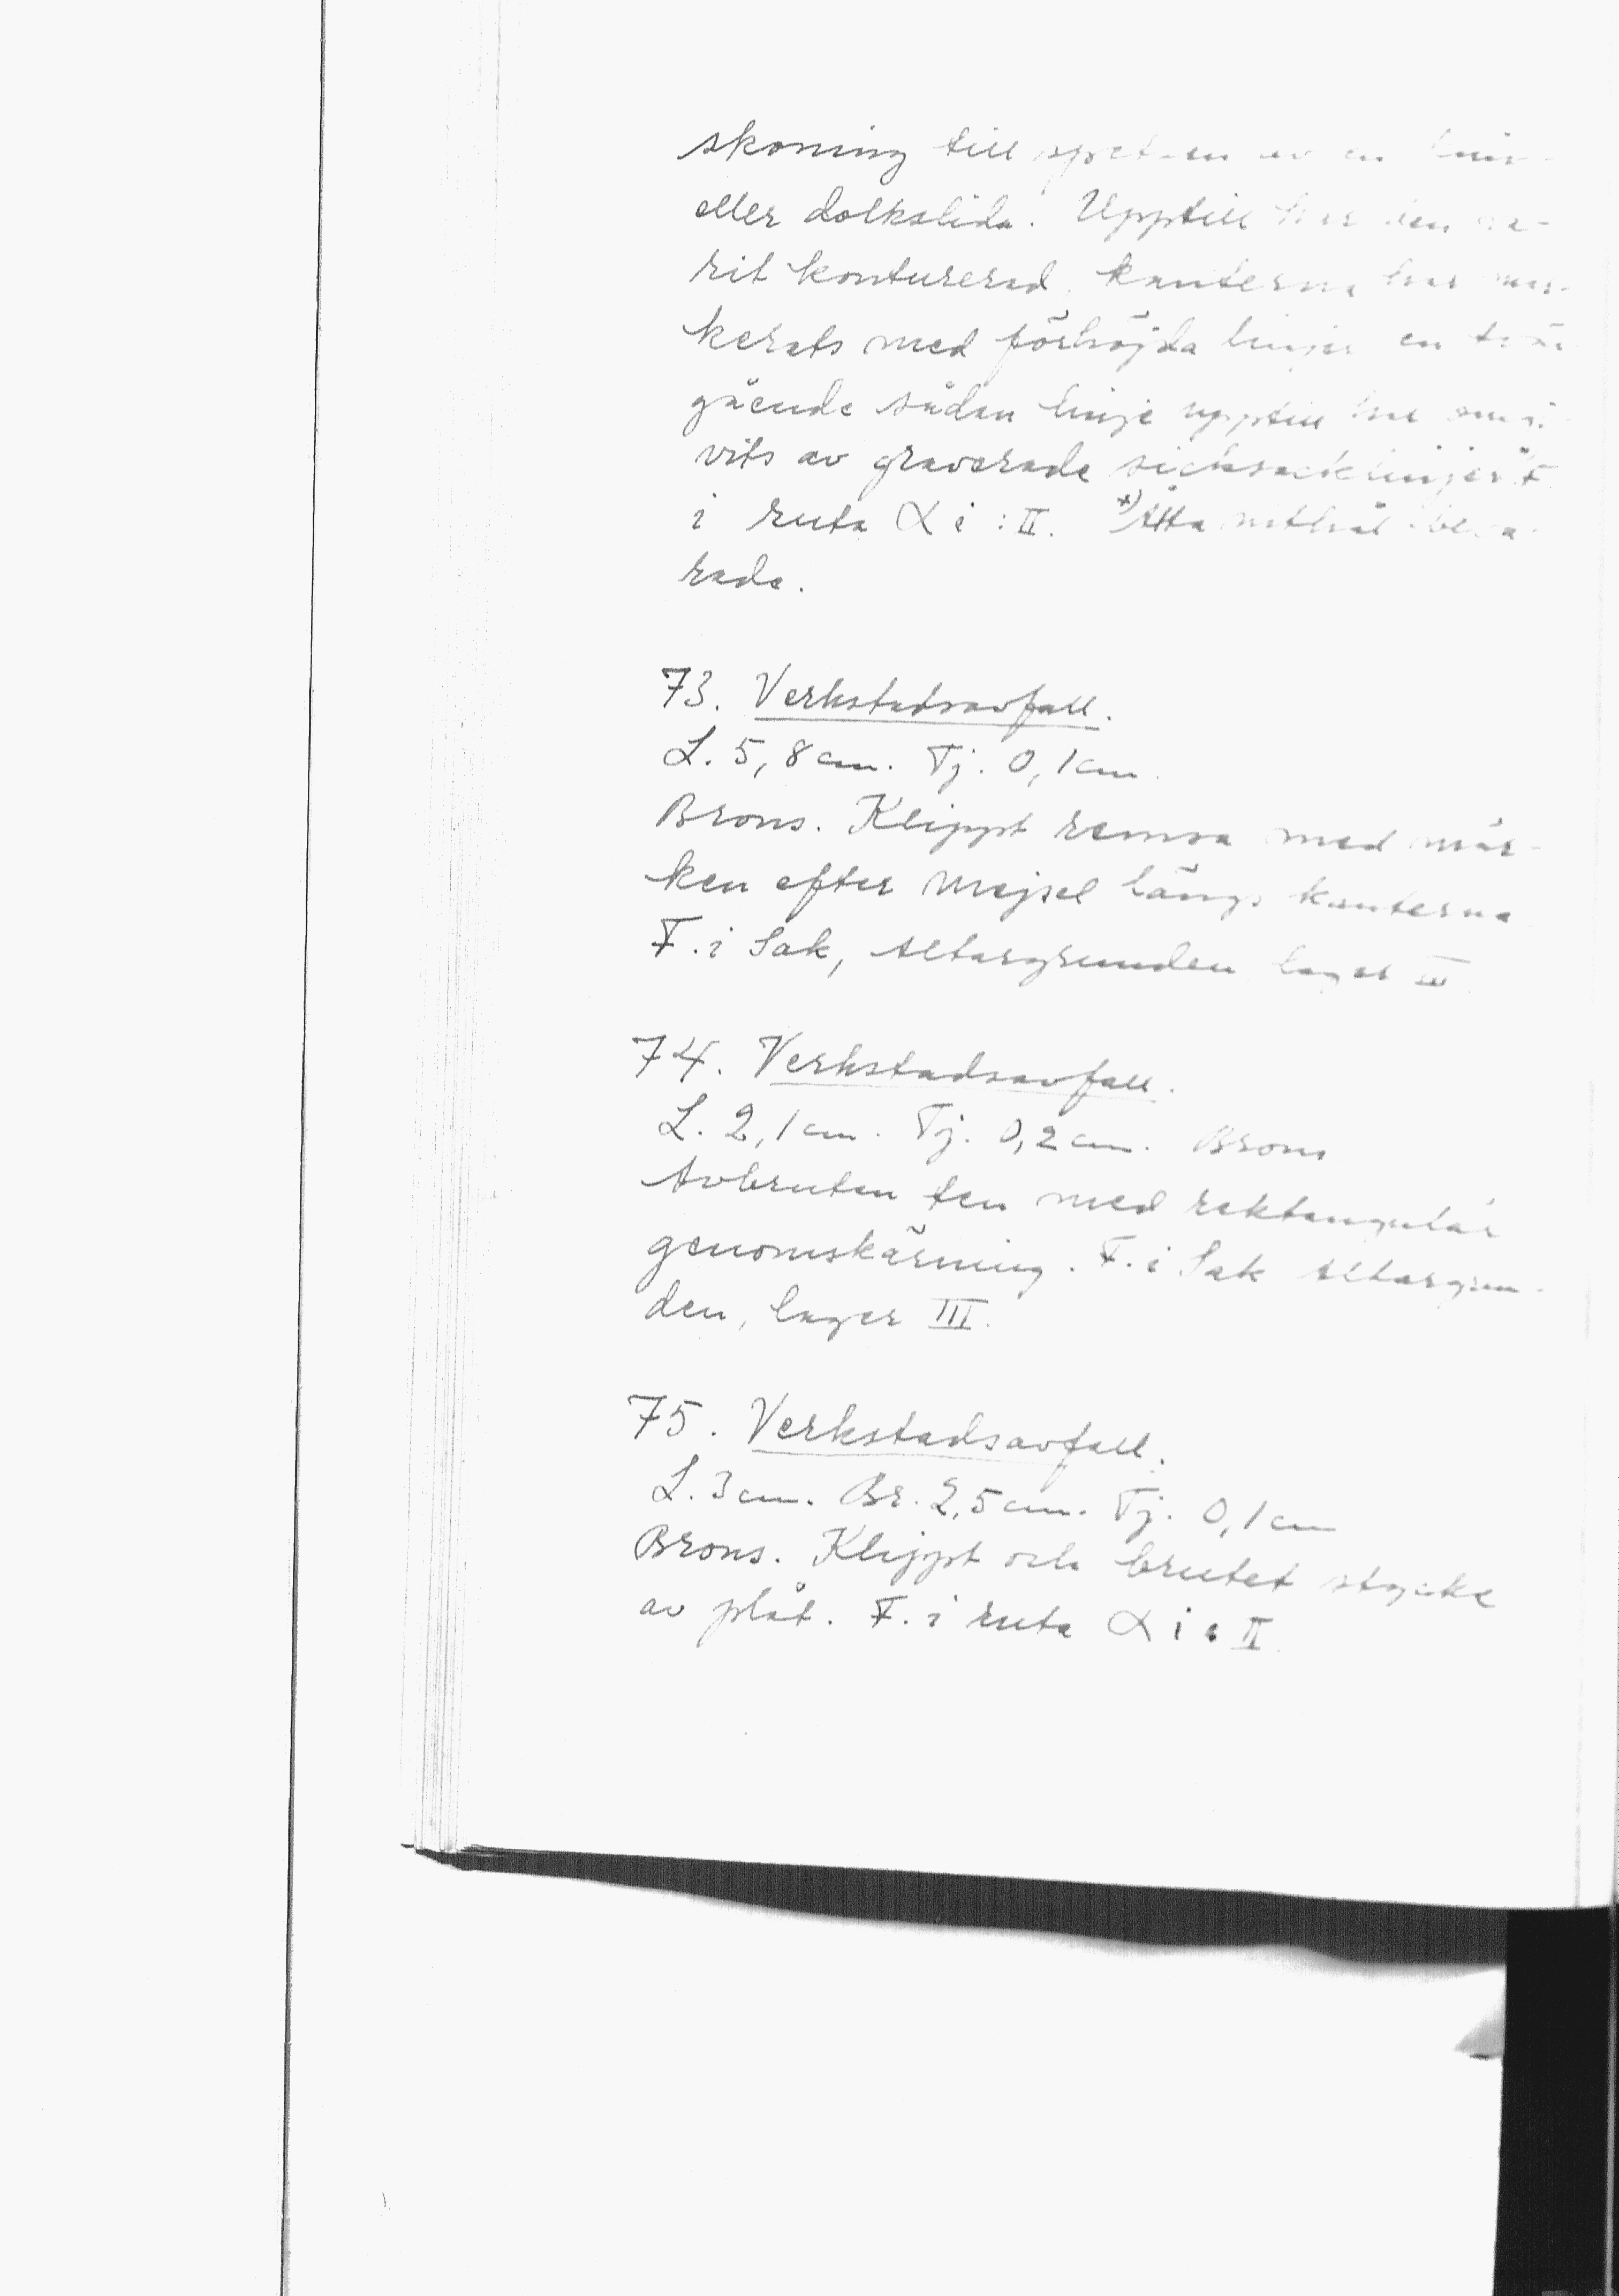 skoning till spetsen av en kniv-
eller dolkslida. Upptill har den va-
rit konturerad. Kanterna har mar-
kerats med förhöjda linjer en tvär
gående sådan linje upptill har omgi-
vits av graverade sicksacklinjer. F.
i ruta α i : II. *) Åtta nithål beva-
rade.
73. Verkstadsavfall.
L. 5,8 cm. Tj. 0,1 cm.
Brons. Klippt remsa med mär-
ken efter mejsel längs kanterna
F. i Sak, Altargrunden lager III
74. Verkstadsavfall.
L. 2,1 cm. Tj. 0,2 cm. Brons
Avbruten ten med rektangulär
genomskärning. F. i Sak Altargrun-
den, lager III.
75. Verkstadsavfall.
L. 3 cm. Br. 2,5 cm. Tj. 0,1 cm
Brons. Klippt och brutet stycke
av plåt. F. i ruta α i : II.